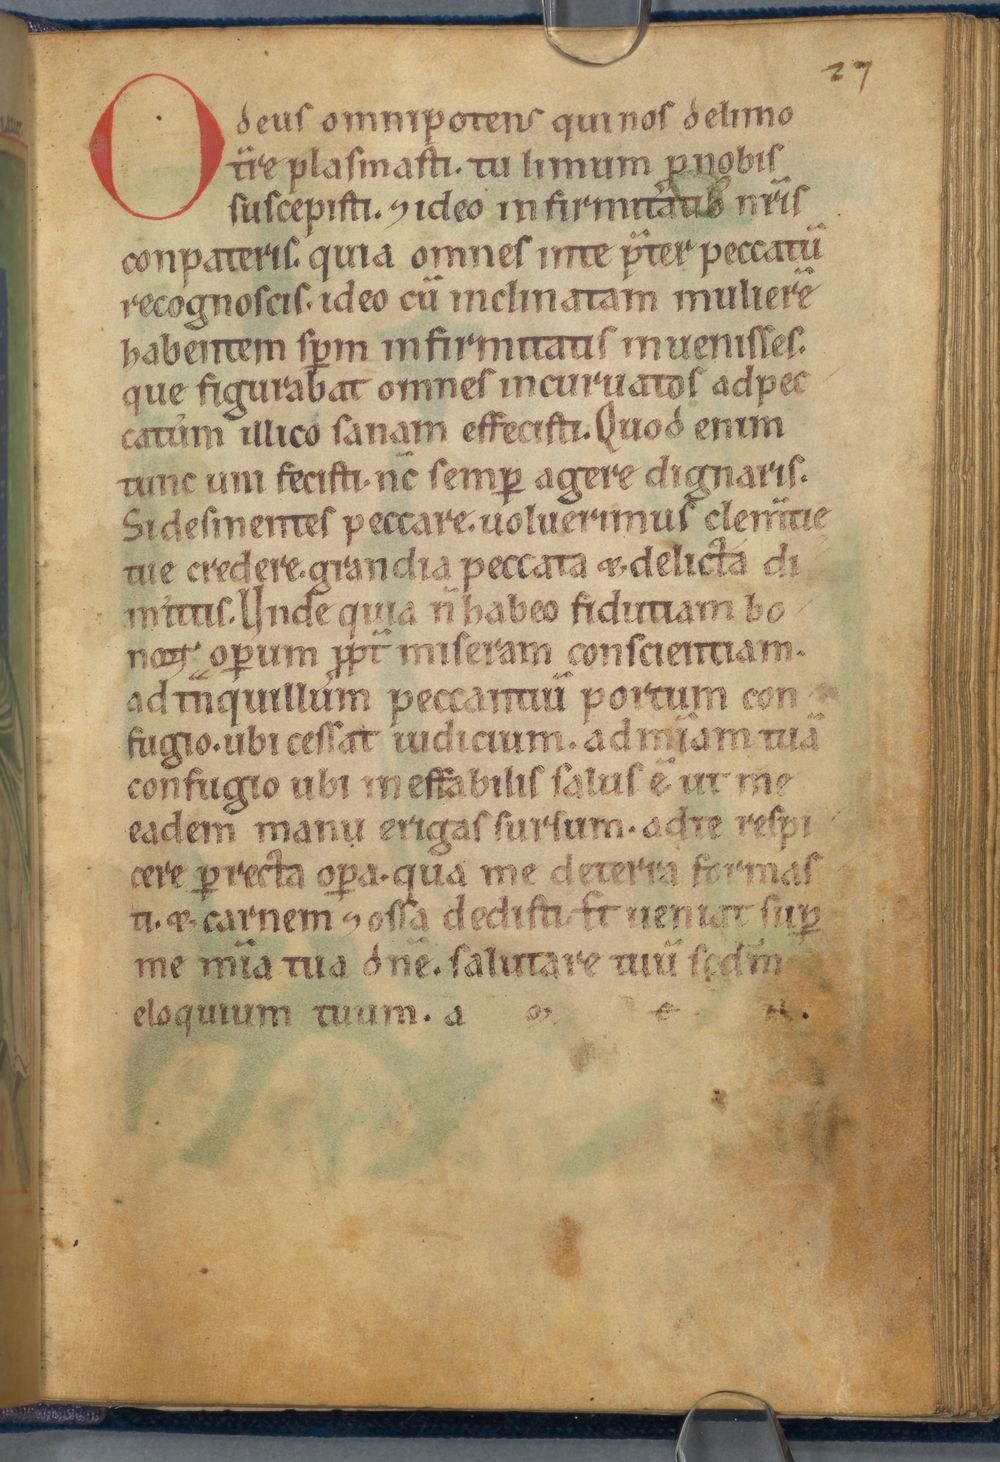 27
O deus omnipotens qui nos delimo
tr̄re plasmasti. tu limum ꝑ nobis
suscepisti. ⁊ ideo infirmitatib; nr̄is
conpateris. quia omnes in te p̄ter peccatū
recognoscis. ideo cū inclinatam mulierē
habentem sp̄m infirmitatis inuenisses.
que figurabat omnes incuruatos ad pec
catum illico sanam effecisti. Quod enim
tunc uni fecisti. nc̄ semꝑ agere dignaris.
Si desinentes peccare. uoluerimus clem̄tie
tue credere. grandia peccata & delicta di
mittis. Unde quia n̄ habeo fidutiam bo
noꝝ oꝑum ꝓpt̄ miseram conscientiam.
ad tn̄quillum peccantiū portum con
fugio. ubi cessat iudicium. ad mīam tuā
confugio ubi ineffabilis salus ē ut me
eadem manu erigas sursum. ad te respi
cere ꝑ recta oꝑa. qua me de terra formas
ti. & carnem ⁊ ossa dedisti. Et ueniat suꝑ
me mīa tua dn̄e. salutare tuū scdm̄
eloquium tuum. a m e n.